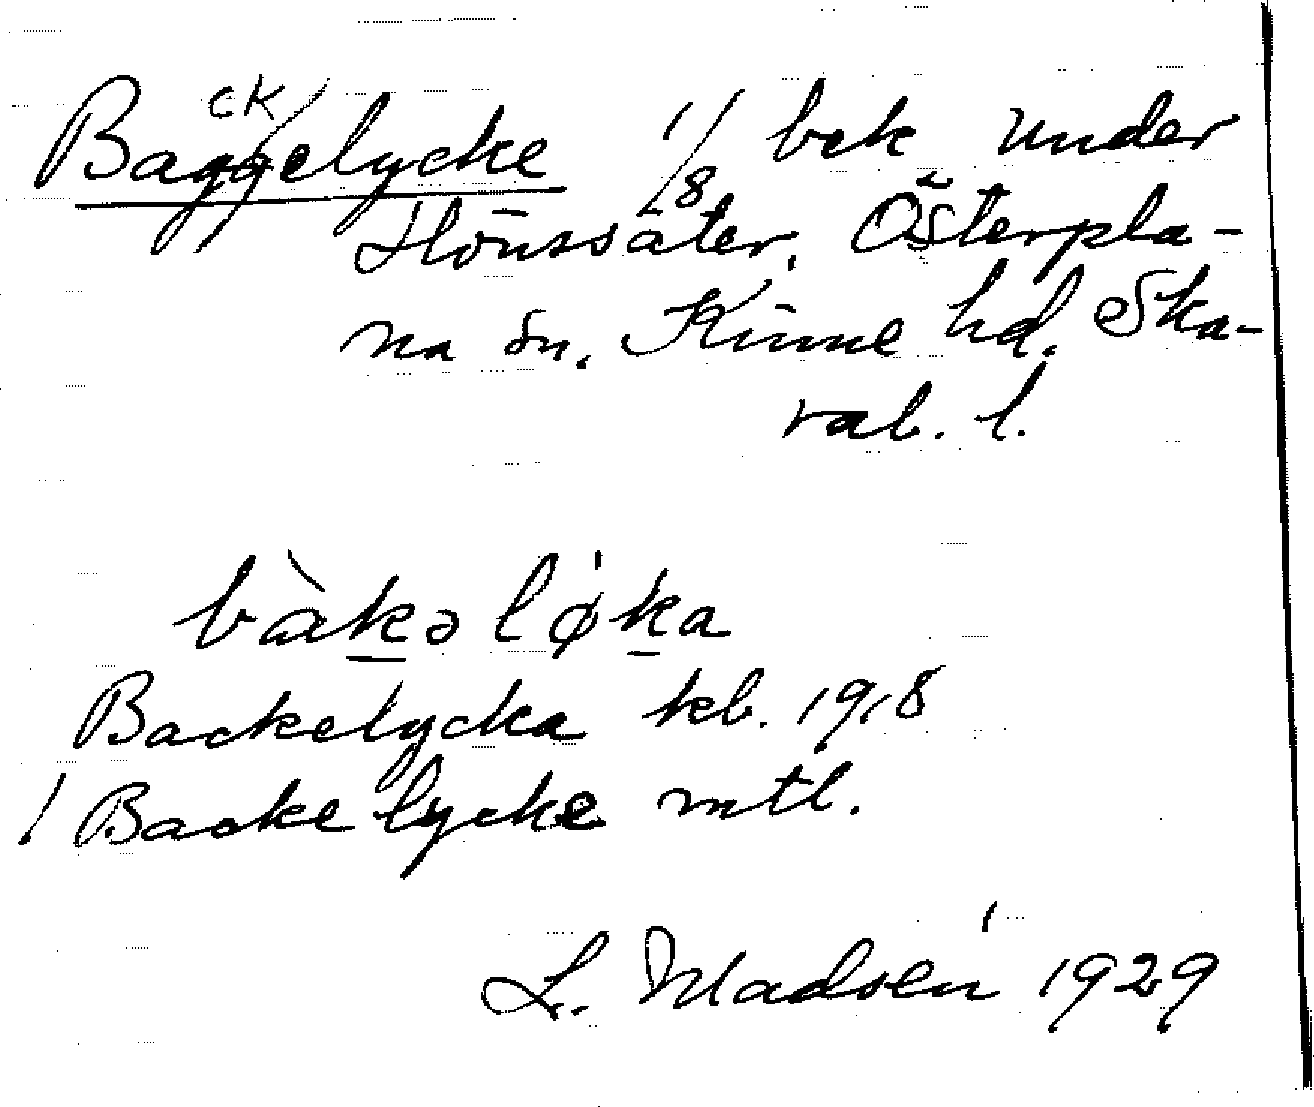 Baggelycke 1/8 bek under
ck
Hönssäter, Österpla-
na sn. Kinne hd. Ska-
rab. l.
bàkəlø̍ka
Backelycka kb. 1918
/ Backelycke mtl.
L. Madsén 1929